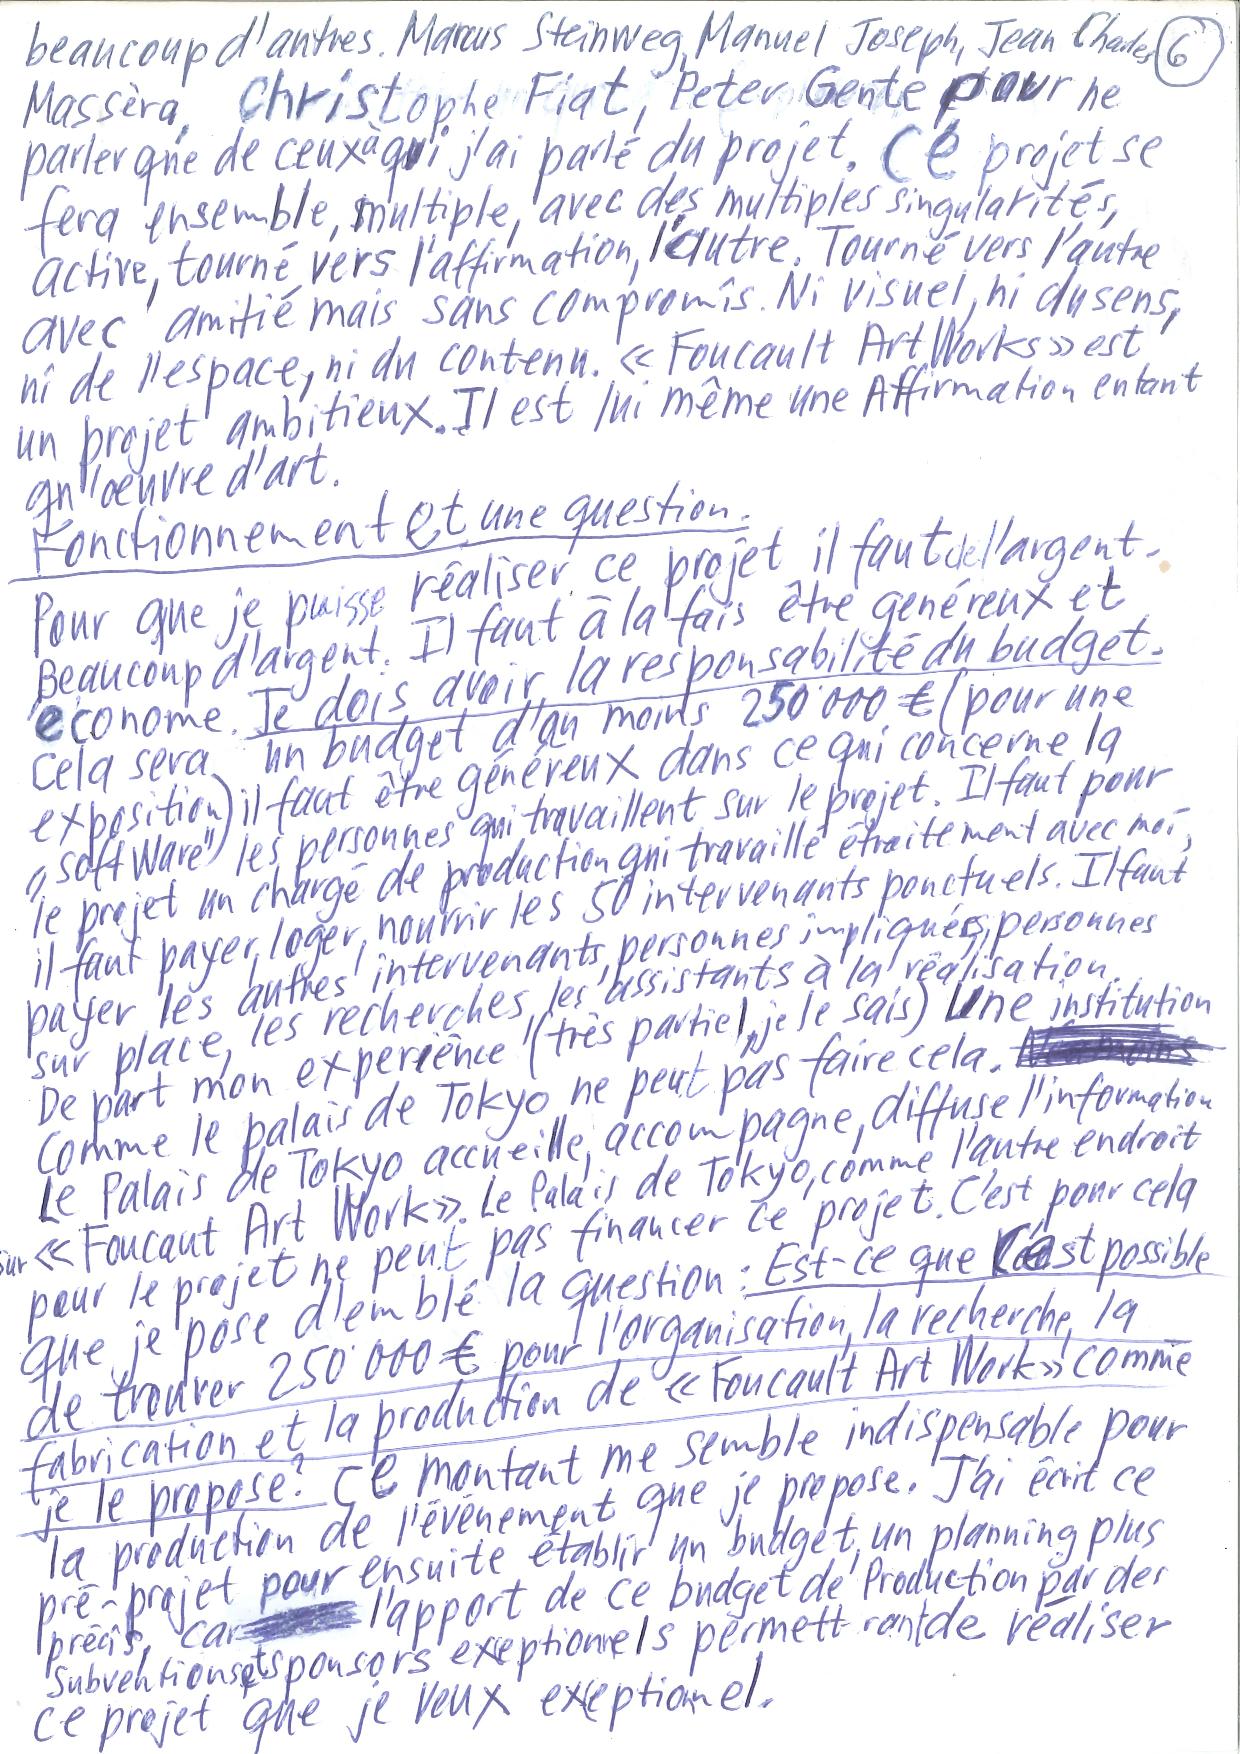 beaucoup d'autres. Marcus Steinweg, Manuel Joseph, Jean Charles 6
Massèra, Christophe Fiat, Peter Gente pour ne
parler que de ceux à qui j'ai parlé du projet. Ce projet se
fera ensemble, multiple, avec des multiples singularités,
active, tourné vers l'affirmation, l'autre. Tourné vers l'autre
avec amitié mais sans compromîs. Ni visuel, ni du sens,
ni de l'espace, ni du contenu. « Foucault Art Works » est
un projet ambitieux. Il est lui même une Affirmation entant
qu'oeuvre d'art.
Fonctionnement et une question.
Pour que je puisse réaliser ce projet il faut de l'argent.
Beaucoup d'argent. Il faut à la fais être genéreux et
econome. Je dois avoir la responsabilité du budget.
Cela sera un budget d'au moins 250'000 € (pour une
exposition) il faut être généreux dans ce qui concerne la
"SoftWare" les personnes qui travaillent sur le projet. Il faut pour
le projet un chargé de production qui travaille étroitement avec moi,
il faut payer, loger, nourrir les 50 intervenants ponctuels. Il faut
payer les autres intervenants, personnes impliquées, personnes
sur place, les recherches, les assistants à la réalisation.
De part mon experiênce (très partiel, je le sais) Une institution
comme le palais de Tokyo ne peut pas faire cela.
Le Palais de Tokyo accueille, accompagne, diffuse l'information
sur « Foucaut Art Work ». Le Palais de Tokyo, comme l'autre endroit
pour le projet ne peut pas financer ce projet. C'est pour cela
que je pose d'emblé la question : Est-ce que c'est possible
de trouver 250'000 € pour l'organisation, la recherche, la
fabrication et la production de « Foucault Art Work » comme
je le propose? Ce montant me semble indispensable pour
la production de l'événement que je propose. J'ai écrit ce
pré-projet pour ensuite établir un budget, un planning plus
précis, car l'apport de ce budget de Production par des
Subventions et sponsors exeptionnels permettrant de réaliser
ce projet que je veux exeptionnel.